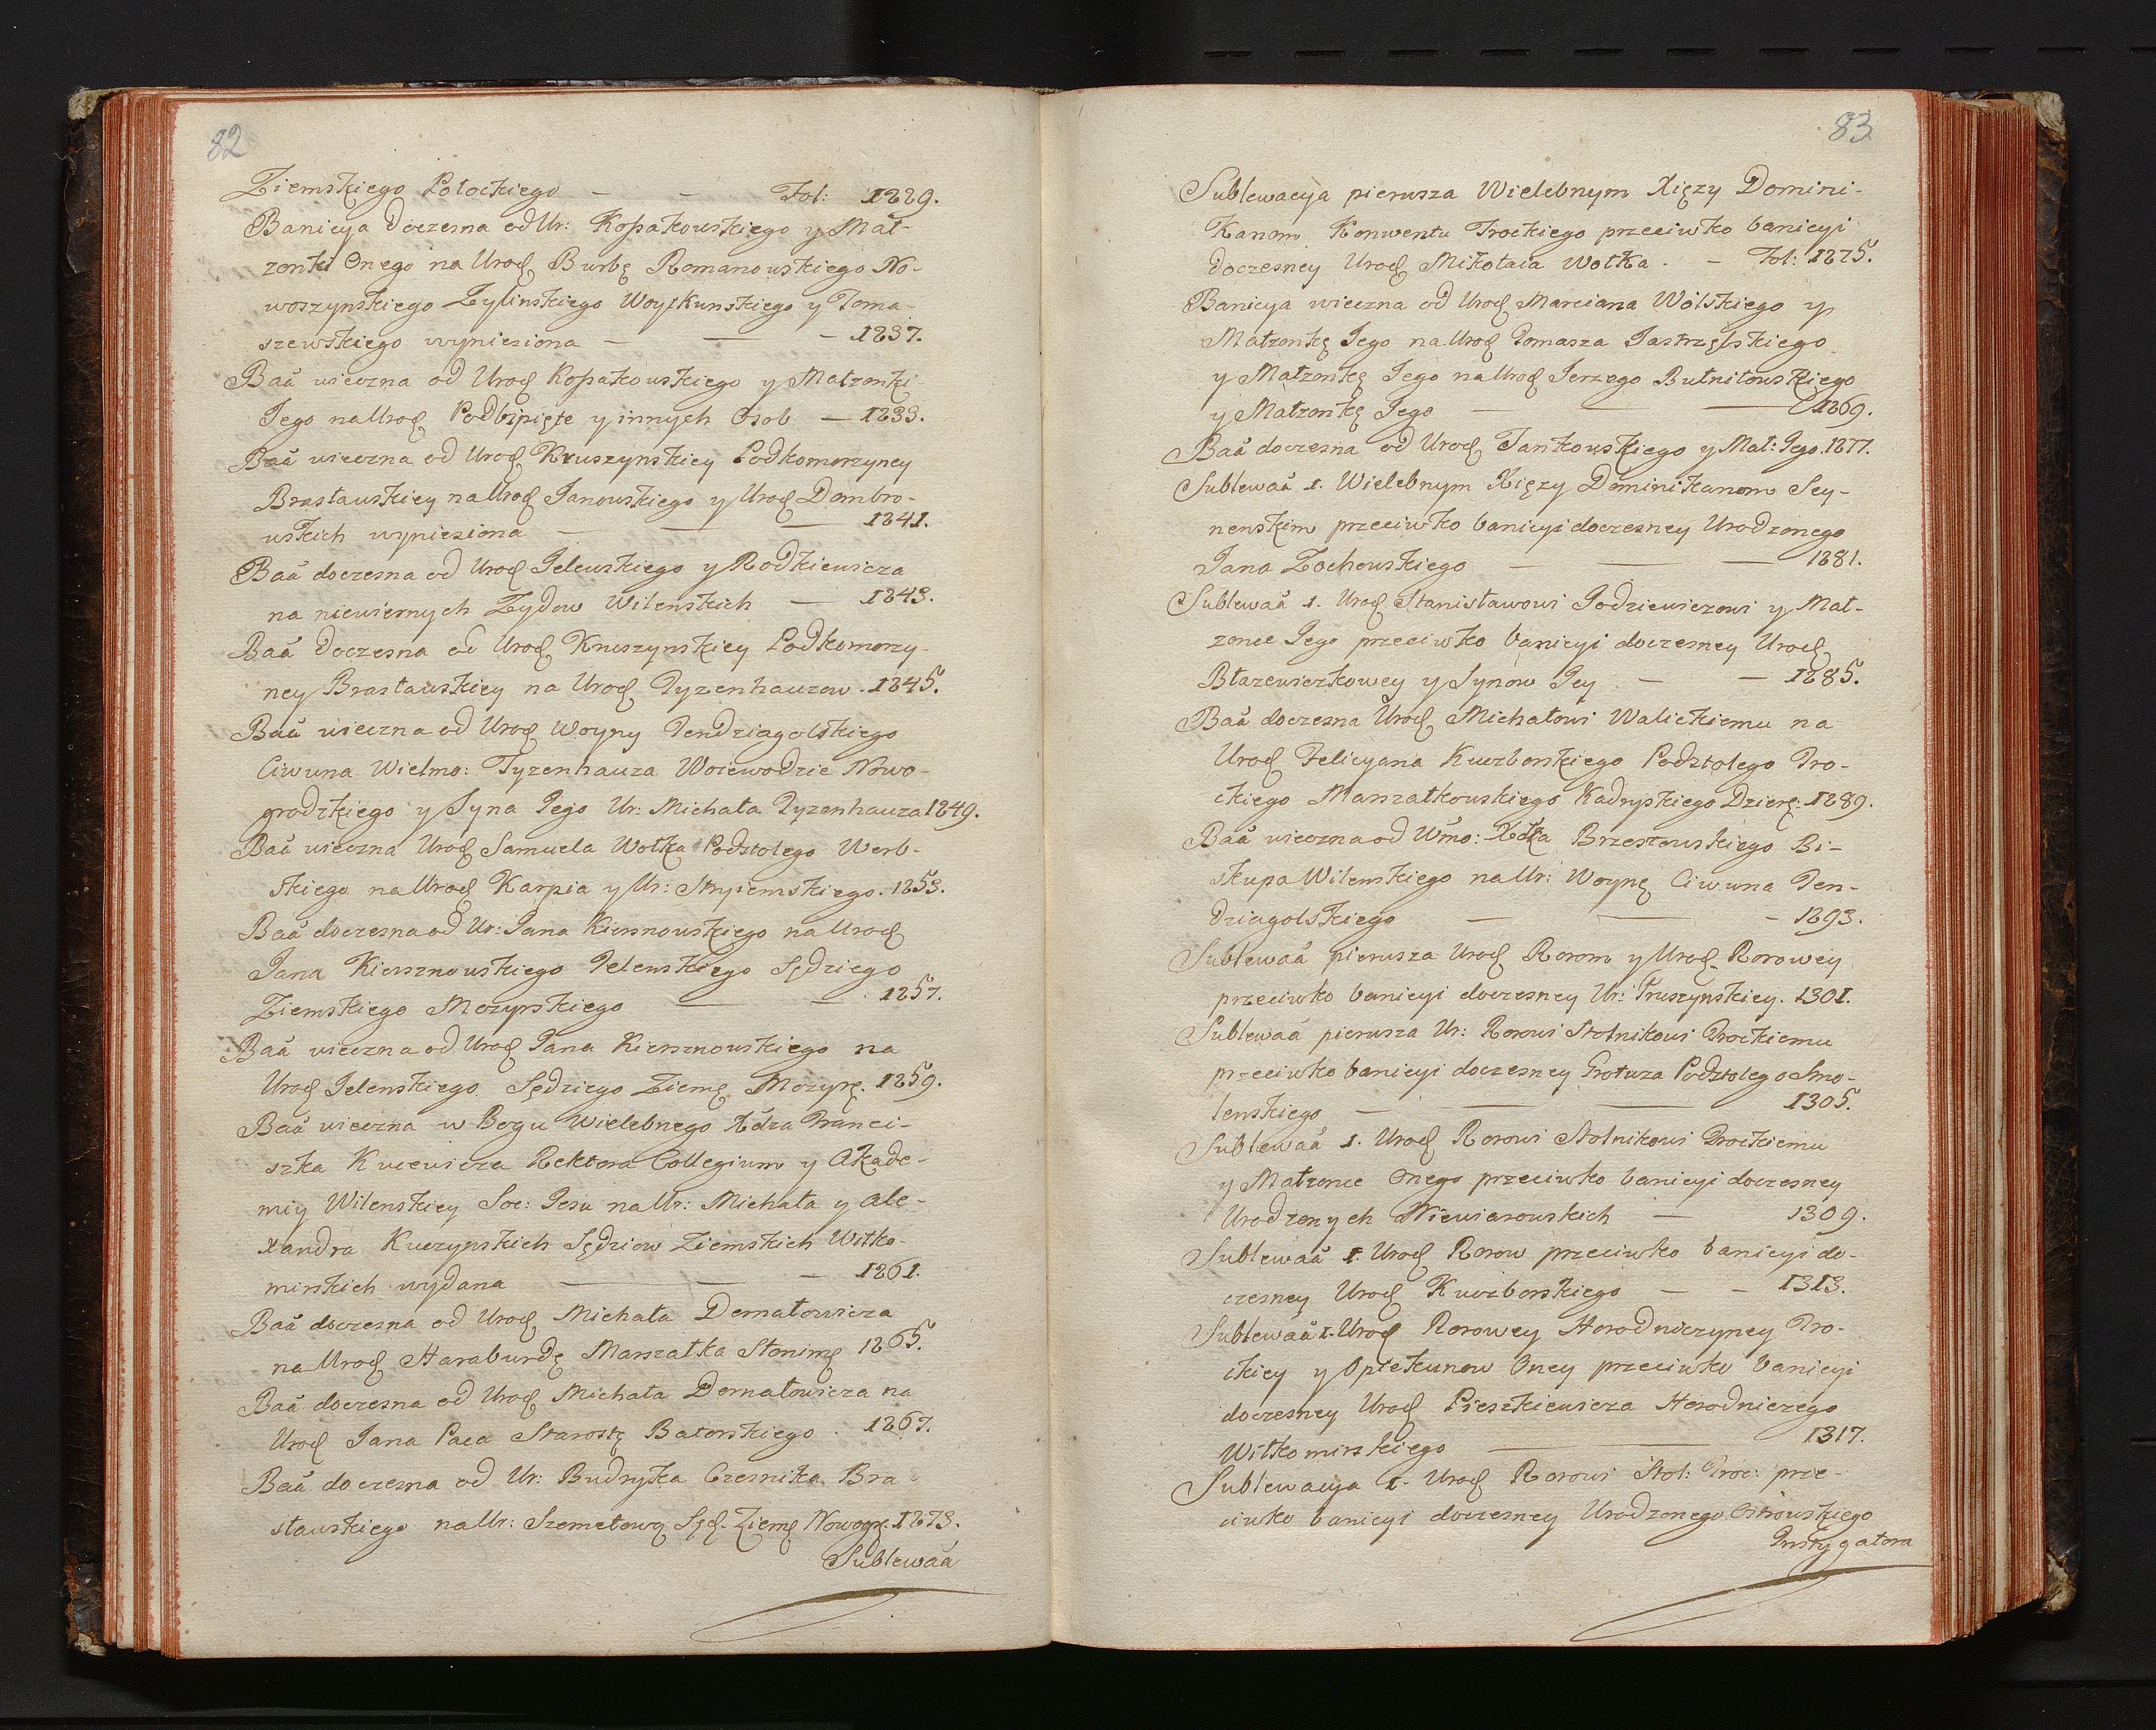 82
Ziemskiego Połockiego — — Fol: 1229.
Banicya doczesna od Ur: Kossakowskiego y Mał-
zonki Onego na Urod Burbę Romanowskiego No-
woszynskiego Zylinskiego Woyskunskiego y Toma-
szewskiego wyniesiona — — — 1237.
Baä wieczna od Urod Kossakowskiego y Małzonki
Jego na Urod Podbipiętę y innych Osob — 1233.
Baä wieczna od Urod Kruszynskiey Podkomorzyney
Brasławskiey na Urod Janowskiego y Urod Dombro-
wskich wyniesiona — — — 1241.
Baä doczesna od Urod Jelewskiego y Rodkiewicza
na niewiernych Zydow Wilenskich — 1243.
Baä doczesna od Urod Kruszynskiey Podkomorzy-
ney Brasławskiey na Urod Tyzenhauzow. 1245.
Baä wieczna od Urod Woyny Jendziagolskiego
Ciwuna Wielmo: Tyzenhauza Woiewodzie Nowo-
grodzkiego y Syna Jego Ur: Michała Tyzenhauza 1249.
Baä wieczna Urod Samuela Wołka Podstolego Werb-
skiego na Urod Karpia y Ur: Stryiemskiego. 1253.
Baä doczesna od Ur: Jana Kiersnowskiego na Urod
Jana Kiersznowskiego Jelenskiego Sędziego
Ziemskiego Mozyrskiego — — 1257.
Baä wieczna od Urod Jana Kiersznowskiego na
Urod Jelenskiego Sędziego Ziemę Mozyrę. 1259.
Baä wieczna w Bogu Wielebnego Xdza Franci-
szka Kucewicza Rektora Collegium y Akade-
miy Wilenskiey Soc: Jesu na Ur: Michała y Ale-
xandra Kuczynskich Sędziow Ziemskich Wiłko-
mirskich wydana — — — 1261.
Baä doczesna od Urod Michała Dernałowicza
na Urod Haraburdę Marszałka Słonimę 1265.
Baä doczesna od Urod Michała Dernałowicza na
Urod Jana Paca Starostę Batorskiego . 1267.
Baä doczesna od Ur: Budryka Czesnika Bra
sławskiego na Ur: Szemetową Sęd. Ziemę Nowogr. 1273.
Sublewaä
83
Sublewacya pierwsza Wielebnym Xięzy Domini-
kanom Konwentu Trockiego przeciwko banicyi
doczesney Urod Mikołaia Wołka. — Fol: 1275.
Banicya wieczna od Urod Marciana Wolskiego y
Małzonkę Jego na Urod Tomasza Jastrzębskiego
y Małzonkę Jego na Urod Jerzego Butnitowskiego
y Małzonkę Jego — — 1269.
Baä doczesna od Urod Jankowskiego y Mał: Jego. 1277.
Sublewaä 1. Wielebnym Xięzy Dominikanom Sey-
nenskim przeciwko banicyi doczesney Urodzonego
Jana Zochowskiego — — — 1281.
Sublewaä 1. Urod Stanisławowi Jodziewiczowi y Mał-
zonce Jego przeciwko banicyi doczesney Urod
Błazewiczkowey y Synow Jey — — 1285.
Baä doczesna Urod Michałowi Walickiemu na
Urod Felicyana Kuczborskiego Podstolego Tro-
ckiego Marszałkowskiego Kadryskiego Dzierę: 1289.
Baä wieczna od Wmo: Xdza Brzostowskiego Bi-
skupa Wilenskiego na Ur: Woynę Ciwuna Jen-
dziagolskiego — — — 1293.
Sublewaä pierwsza Urod Rorom y Urod Rorowey
przeciwko banicyi doczesney Ur: Pruszynskiey. 1301.
Sublewaä pierwsza Ur: Rorowi Stolnikowi Trockiemu
przeciwko banicyi doczesney Grotuza Podstolego Smo-
lenskiego — — — 1305.
Sublewaä 1. Urod Rorowi Stolnikowi Trockiemu
y Małzonce Onego przeciwko banicyi doczesney
Urodzonych Niewiarowskich — 1309.
Sublewaä 1. Urod Rorow przeciwko banicyi do-
czesney Urod Kuczborskiego — — 1313.
Sublewaä 1. Urod Rorowey Horodniczyney Tro-
ckiey y Opiekunow Oney przeciwko banicyi
doczesney Urod Pieszkiewicza Horodniczego
Wiłkomirskiego — — 1317.
Sublewacya 1. Urod Rorowi Stol: Troc: prze-
ciwko banicyi doczesney Urodzonego Ostrowskiego
Instygatora